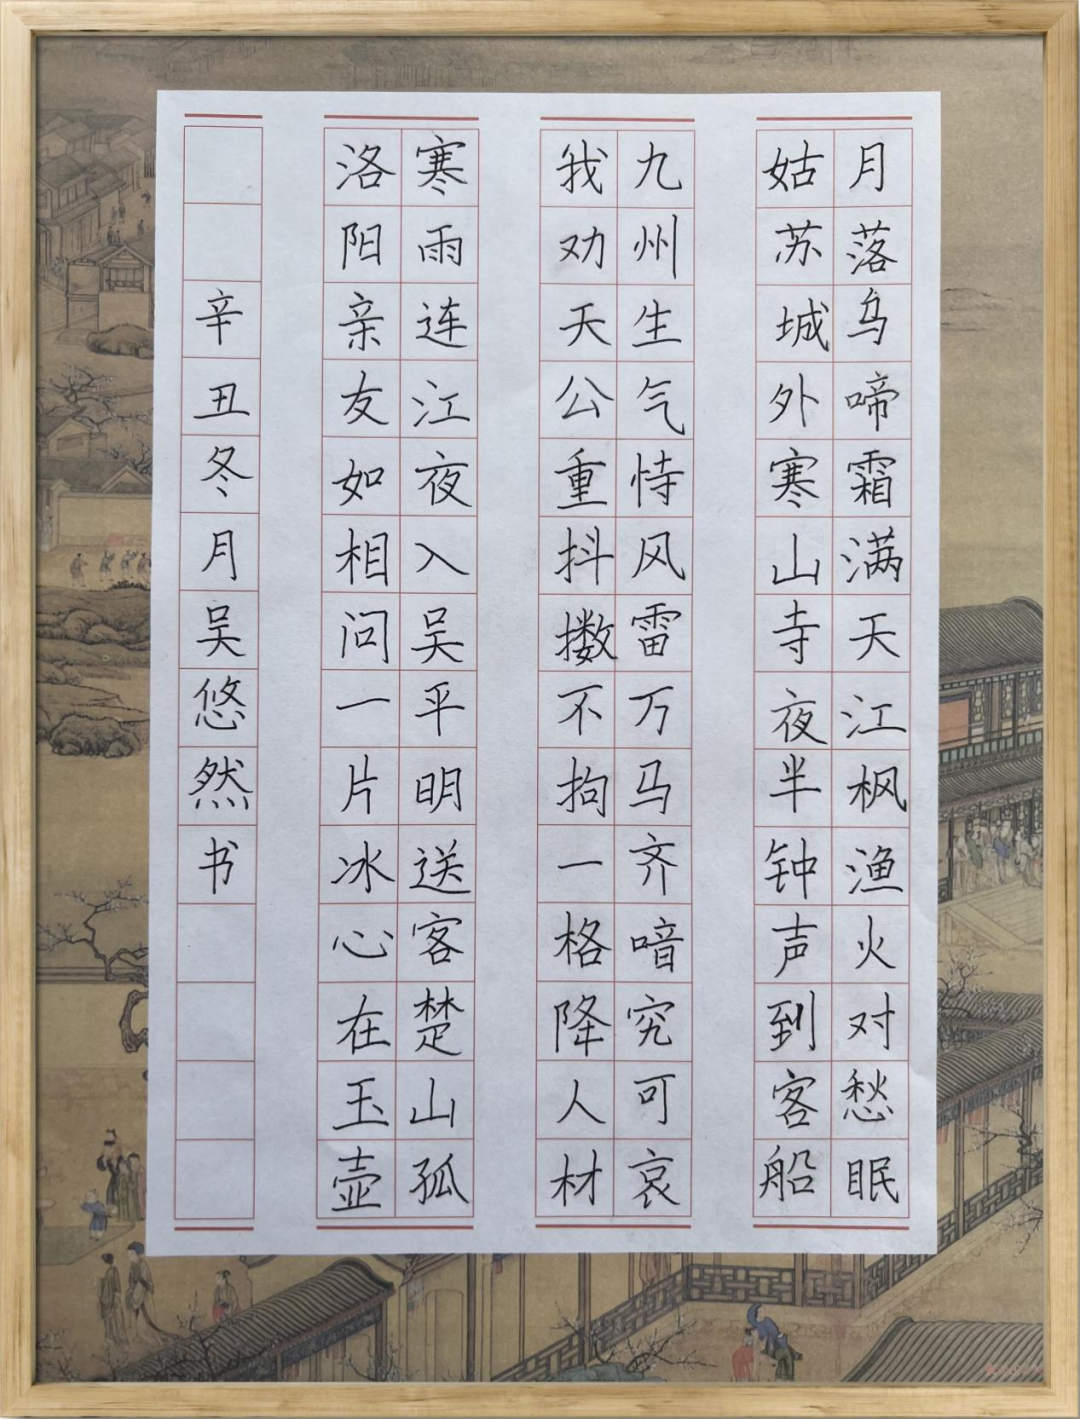 月落乌啼霜满天江枫渔火对愁眠
姑苏城外寒山寺夜半钟声到客船
九州生气恃风雷万马齐喑究可哀
我劝天公重抖擞不拘一格降人材
寒雨连江夜入吴平明送客楚山孤
洛阳亲友如相问一片冰心在玉壶
辛丑冬月吴悠然书